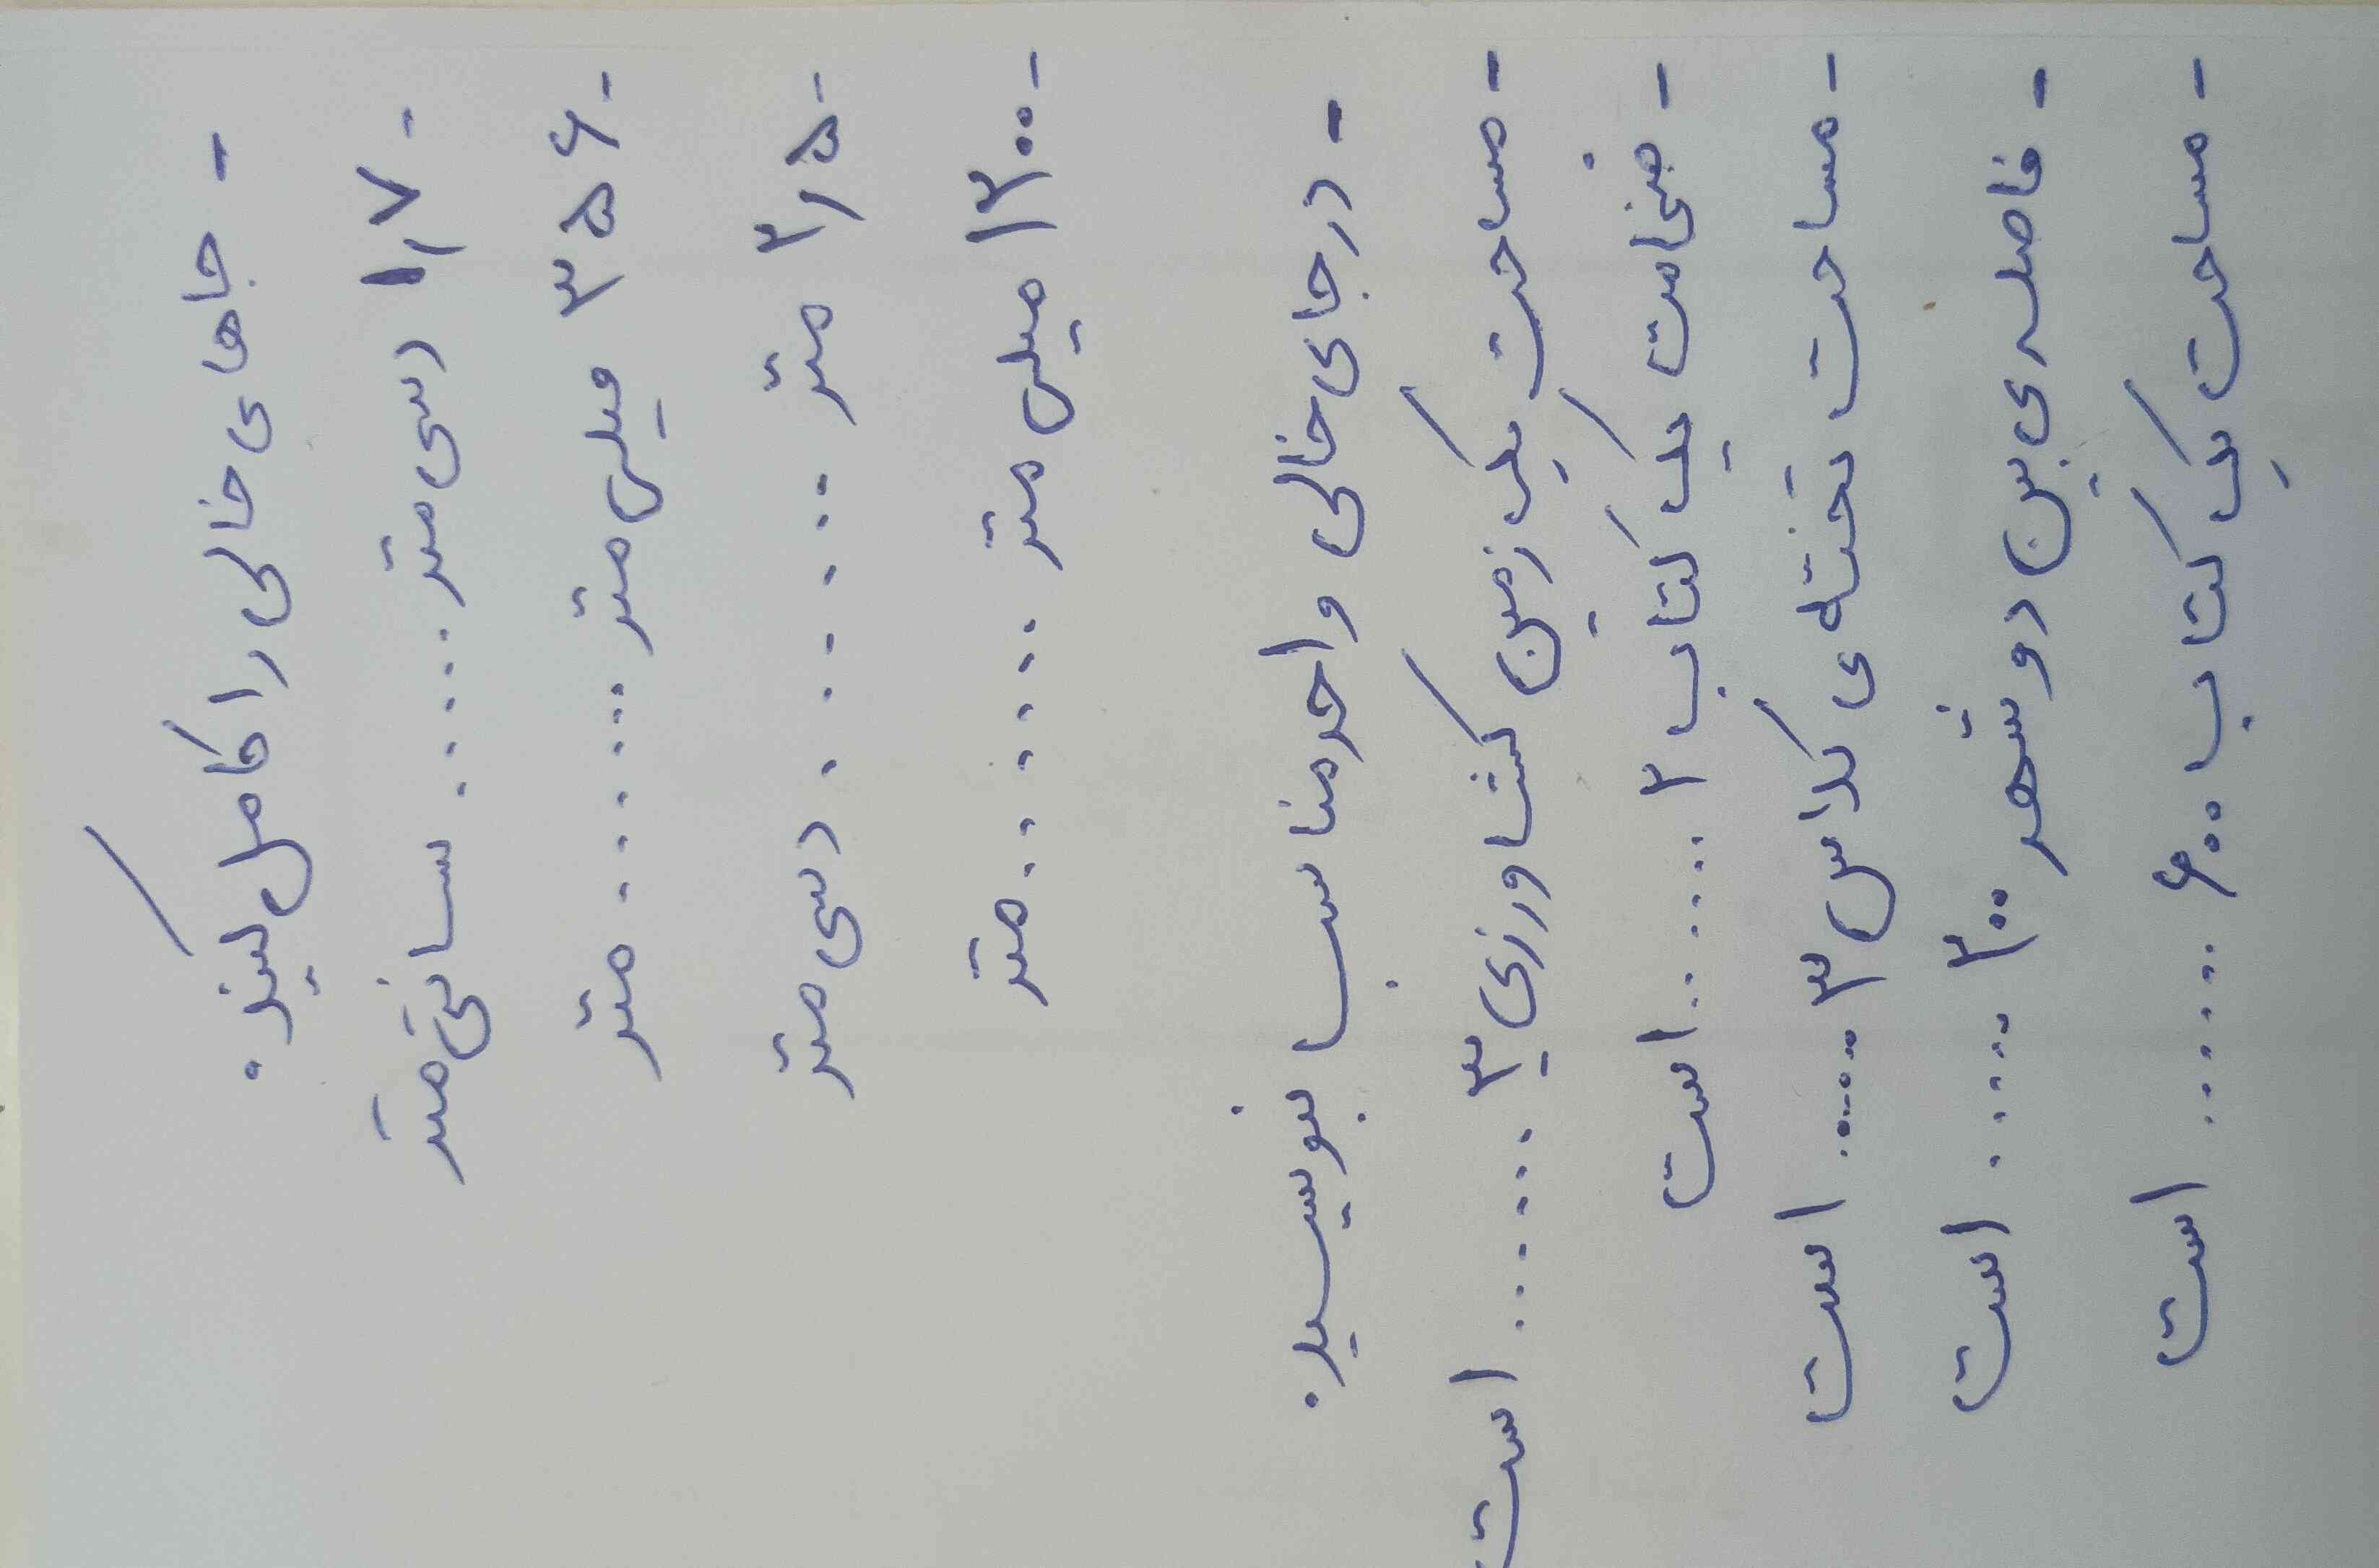 - جاهای خالی را کامل کنید.
- ۱٫۷ دسی متر ........ سانتی متر
- ۳۵۶ میلی متر ........ متر
- ۳٫۵ متر ........ دسی متر
- ۱۳۰۰ میلی متر ........ متر
- در جای خالی واحد مناسب بنویسید.
- مساحت یک زمین کشاورزی ۳ ........ است
- ضخامت یک کتاب ۲ ........ است
- مساحت تخته ی کلاس ۳ ........ است
- فاصله ی بین دو شهر ۲۰۰ ........ است
- مساحت یک کتاب ۶۰۰ ........ است